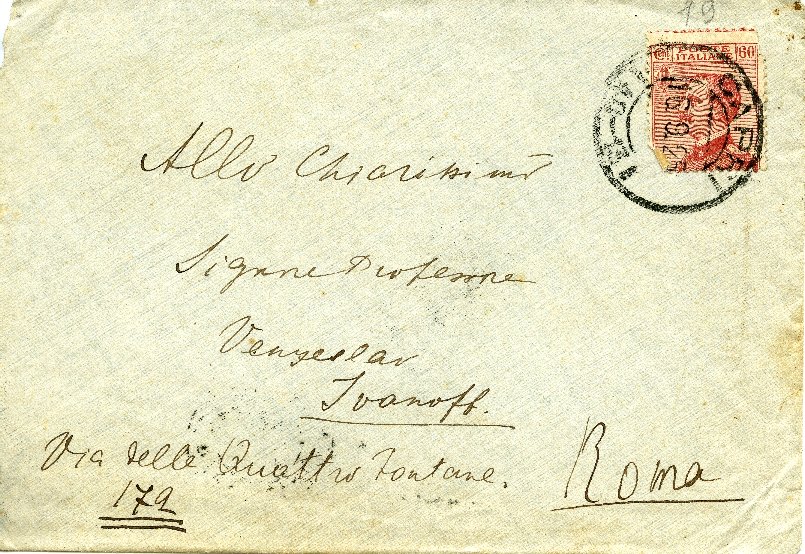 19
POSTE
ITALIANE
60
CAPRI
Allo Chiarissimo
Signore Professore
Venceslav
Ivanoff.
Via delle Quattro Fontane.
172
Roma